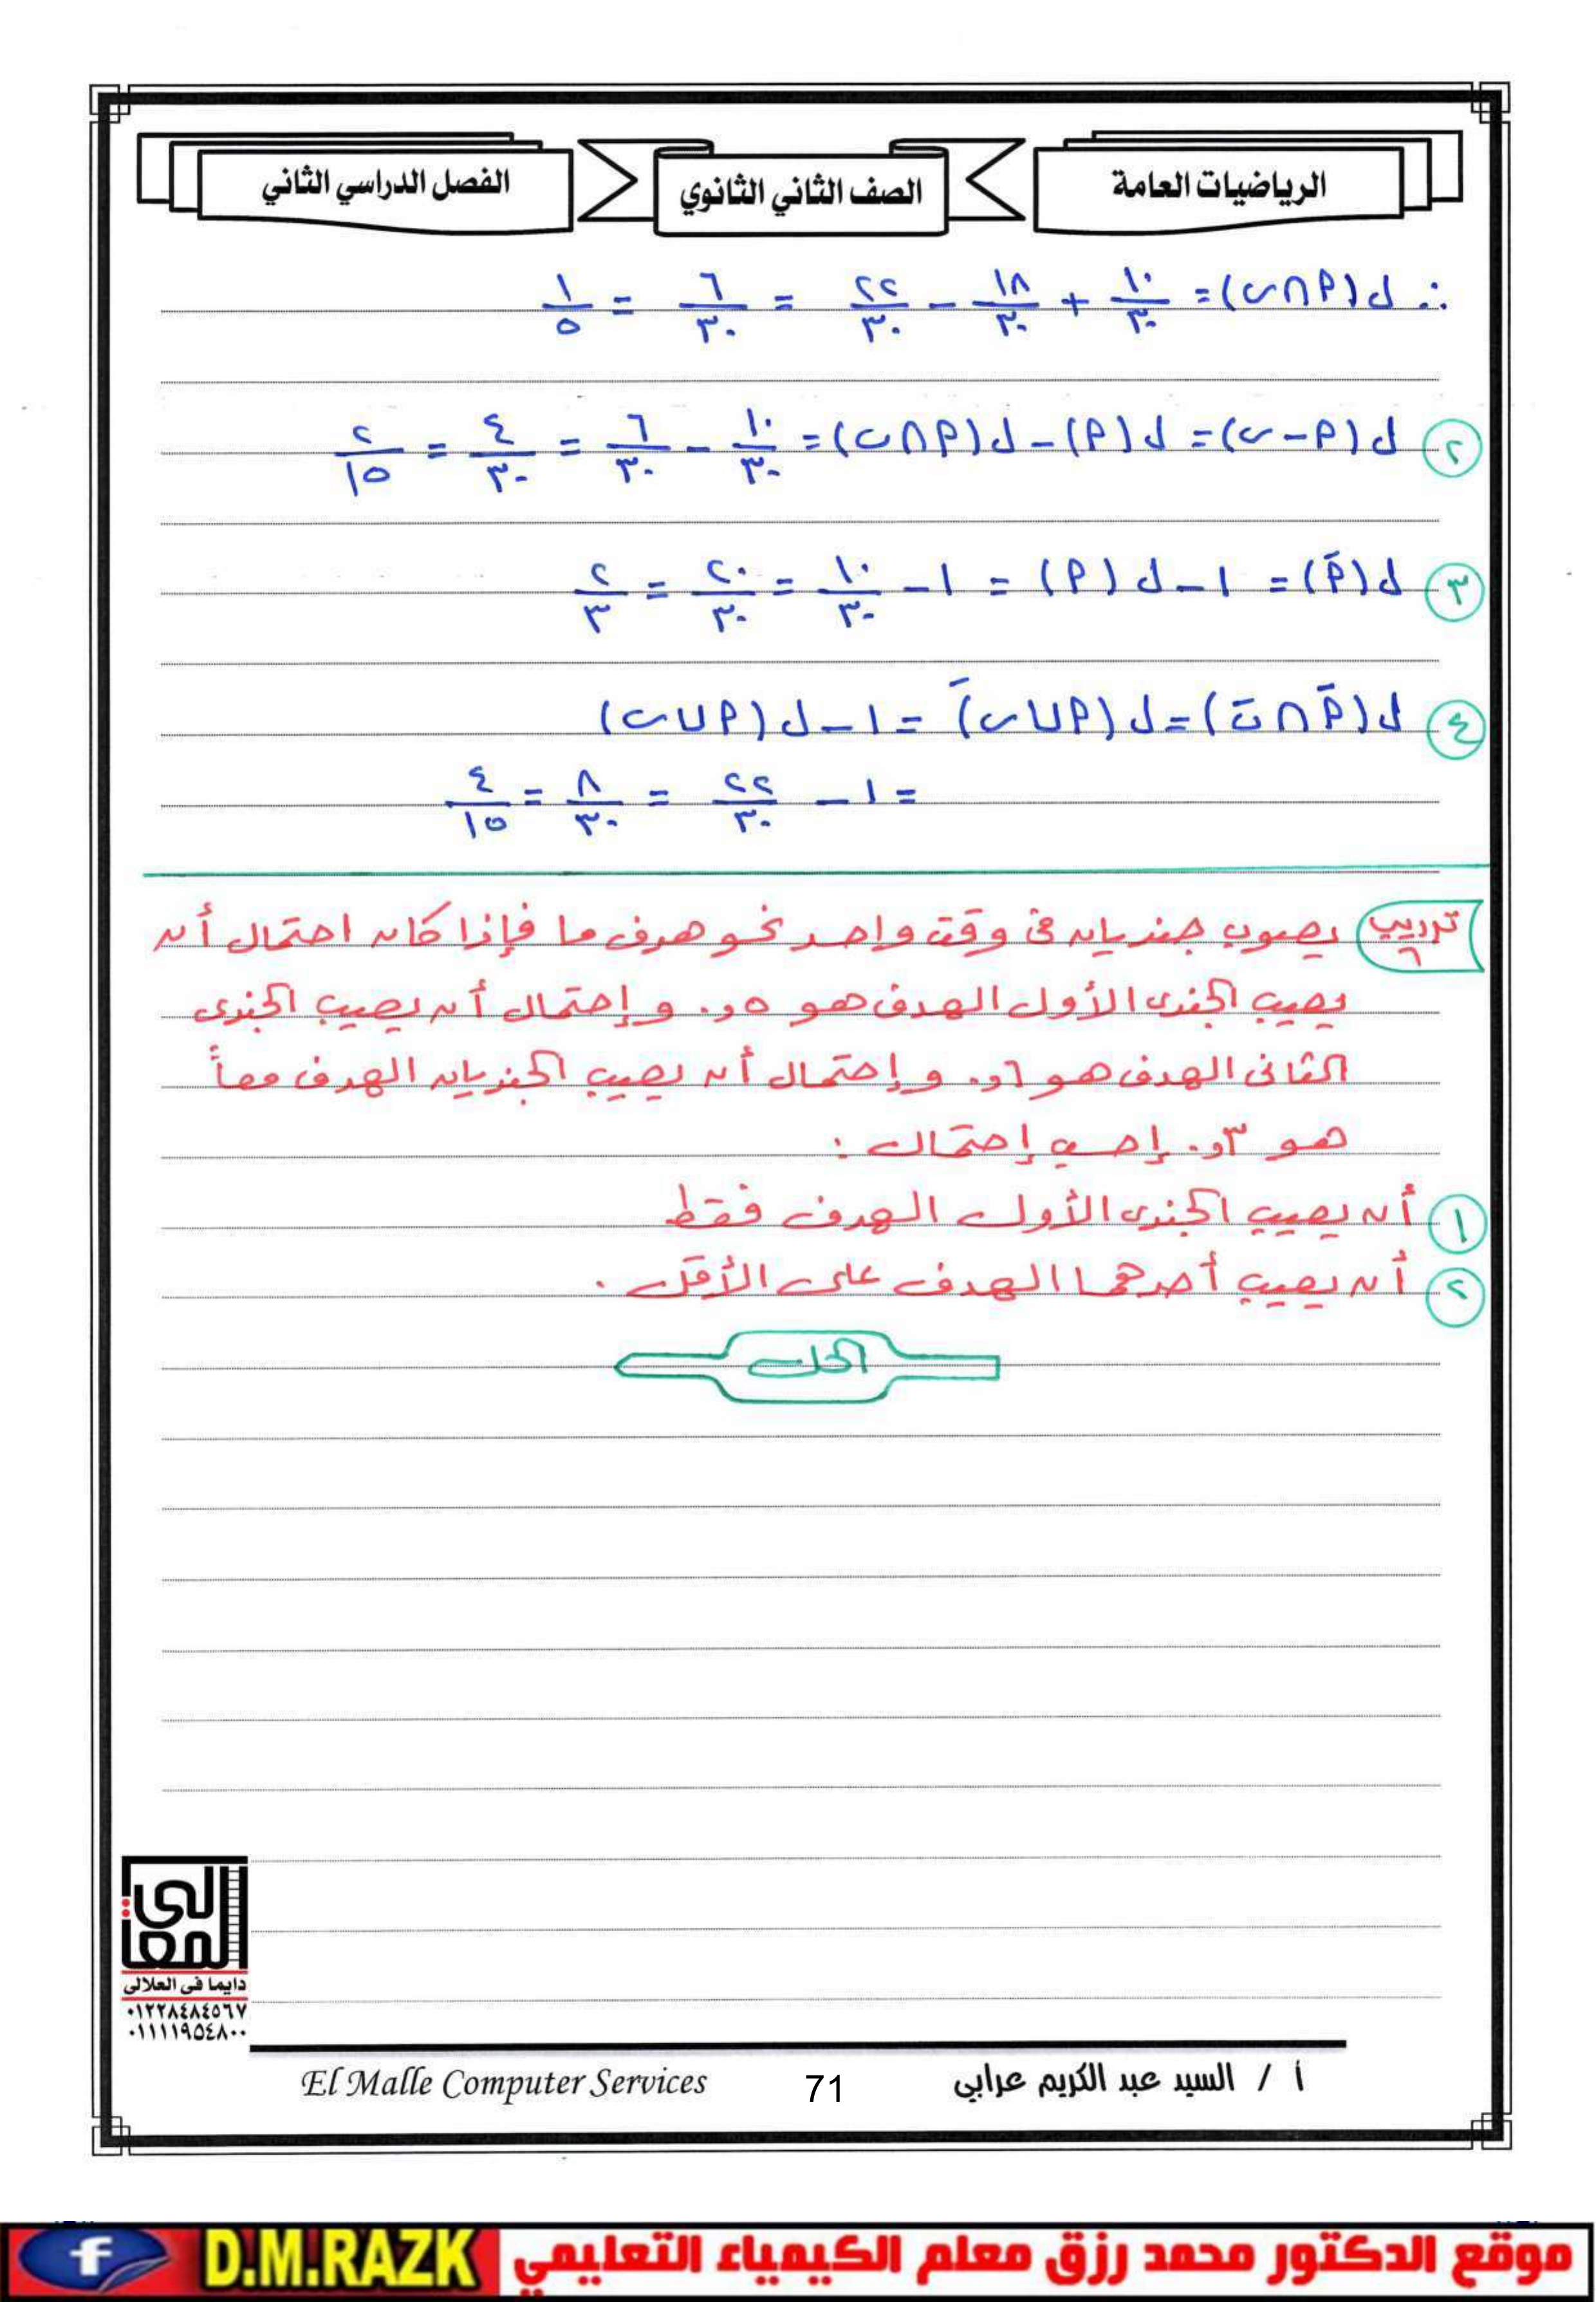 الرياضيات العامة
الصف الثاني الثانوي
الفصل الدراسي الثاني
∴ ل(P∩ب) = ١٠/٣٠ + ١٨/٣٠ − ٢٢/٣٠ = ٦/٣٠ = ١/٥
٢ ل(P−ب) = ل(P) − ل(P∩ب) = ١٠/٣٠ − ٦/٣٠ = ٤/٣٠ = ٢/١٥
٣ ل(P̄) = ١ − ل(P) = ١ − ١٠/٣٠ = ٢٠/٣٠ = ٢/٣
٤ ل(P̄∩ب̄) = ل(P∪ب)¯ = ١ − ل(P∪ب)
= ١ − ٢٢/٣٠ = ٨/٣٠ = ٤/١٥
تدريب ٦ يصوب جنديان في وقت واحد نحو هدف ما فإذا كان احتمال أن
يصيب الجندى الأول الهدف هو ٥و٠ و إحتمال أن يصيب الجندى
الثانى الهدف هو ٦و٠ و إحتمال أن يصيب الجنديان الهدف معاً
هو ٣و٠ إحسب إحتمال :
١ أن يصيب الجندى الأول الهدف فقط
٢ أن يصيب أحدهما الهدف على الأقل .
الحل
المعالى
دايما فى العلالى
٠١٢٢٨٤٨٤٥٦٧
٠١١١١٩٥٤٨٠٠
أ / السيد عبد الكريم عرابي
71
El Malle Computer Services
موقع الدكتور محمد رزق معلم الكيمياء التعليمي
D.M.RAZK
f